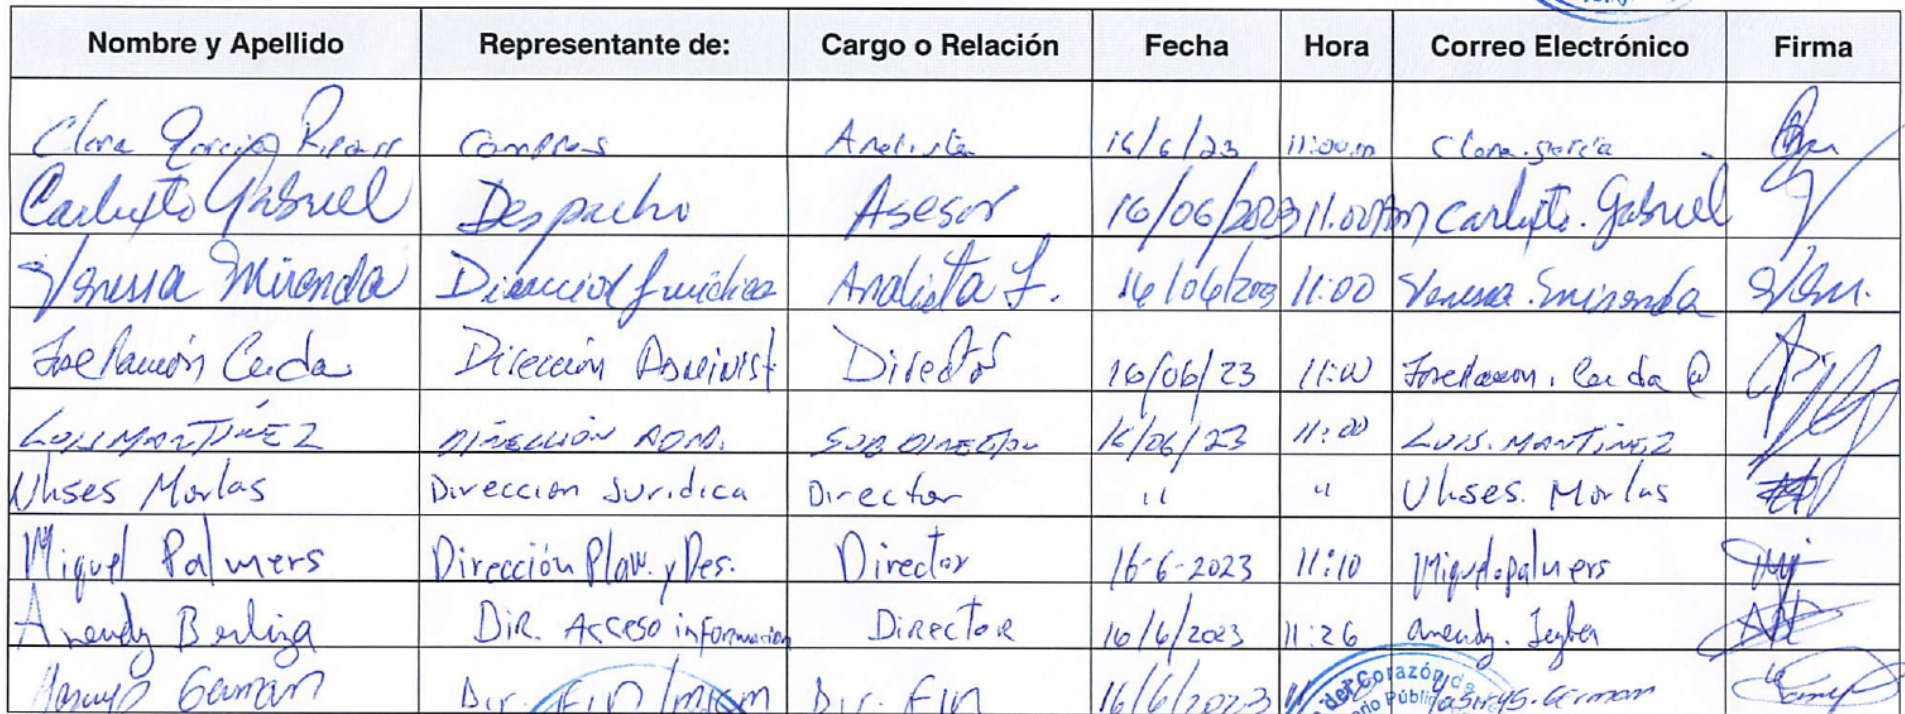 Nombre y Apellido Representante de: Cargo o Relación Fecha Hora Correo Electrónico Firma
Clara García Compras Analista 16/6/23 11:00am Clara.garcía
Carlixto Gabriel Despacho Asesor 16/06/2023 11:00Am Carlixto.Gabriel
Vanessa Miranda Dirección Jurídica Analista J. 16/06/2023 11:00 Vanessa.miranda
José Ramón Cerda Dirección Administ Director 16/06/23 11:00 JoseRamon.Cerda@
LUIS MARTÍNEZ DIRECCIÓN ADM. SUB DIRECTOR 16/06/23 11:00 LUIS.MARTÍNEZ
Ulises Morlas Dirección Juridica Director " " Ulises.Morlas
Miguel Palmers Dirección Plan. y Des. Director 16-6-2023 11:10 Miguel.palmers
Anendy Berliza DIR. Acceso información Director 16/6/2023 11:26 anendy.
German Dir. FIN/ Dir. FIN 16/6/2023 German
Corazón de